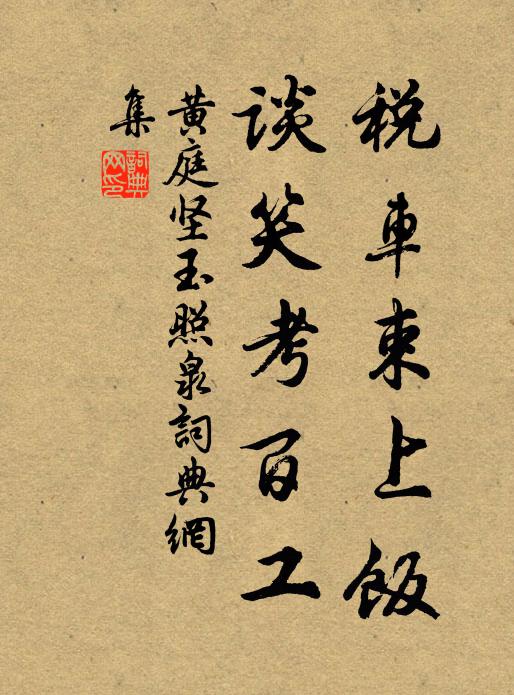 税車来上飯
谈笑考百工
黄庭坚玉照泉詞典網
集
詞典
网印